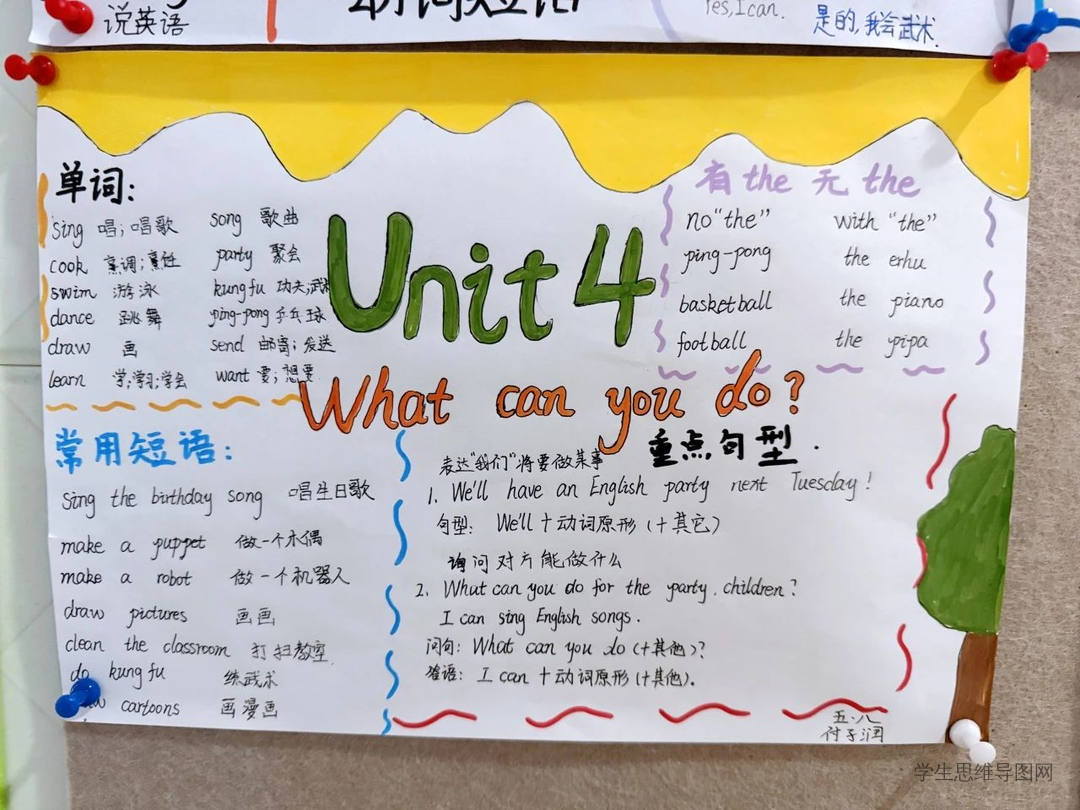 说英语
动词短语
Yes, I can.
是的,我会武术.
单词:
sing 唱;唱歌 song 歌曲
cook 烹调;烹饪 party 聚会
swim 游泳 kungfu 功夫;武术
dance 跳舞 ping-pong 乒乓球
draw 画 send 邮寄;发送
learn 学;学习;学会 want 要;想要
Unit 4
What can you do?
有 the 无 the
no "the" with "the"
ping-pong the erhu
basketball the piano
football the pipa
常用短语:
sing the birthday song 唱生日歌
make a puppet 做一个木偶
make a robot 做一个机器人
draw pictures 画画
clean the classroom 打扫教室
do kung fu 练武术
cartoons 画漫画
重点句型.
表达"我们"将要做某事
1. We'll have an English party next Tuesday!
句型: We'll 十动词原形(十其它)
询问对方能做什么
2. What can you do for the party, children?
I can sing English songs.
问句: What can you do (十其他)?
答语: I can 十动词原形(十其他).
五.八
付子润
学生思维导图网